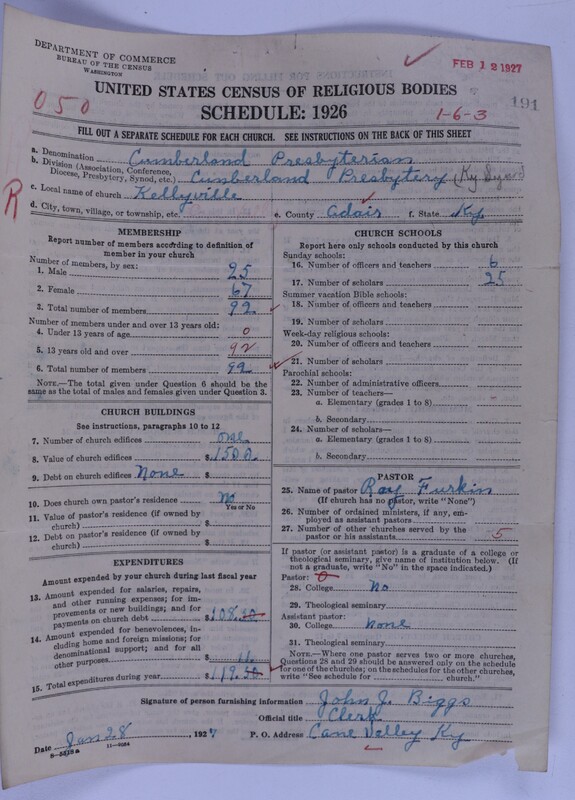 DEPARTMENT OF COMMERCE
BUREAU OF THE CENSUS
WASHINGTON
FEB 12 1927
191
050
UNITED STATES CENSUS OF RELIGIOUS BODIES
SCHEDULE: 1926
1-6-3
FILL OUT A SEPARATE SCHEDULE FOR EACH CHURCH. SEE INSTRUCTIONS ON THE BACK OF THIS SHEET
R
a. Denomination Cumberland Presbyterian
b. Division (Association, Conference, Diocese, Presbytery, Synod, etc.) Cumberland Presbytery (Ky Synod)
c. Local name of church Kellyville
d. City, town, village, or township, etc. e. County Adair f. State Ky.
MEMBERSHIP
Report number of members according to definition of
member in your church
Number of members, by sex:
1. Male 25
2. Female 67
3. Total number of members 92
Number of members under and over 13 years old:
4. Under 13 years of age 0
5. 13 years old and over 92
6. Total number of members 92
NOTE.—The total given under Question 6 should be the
same as the total of males and females given under Question 3.
CHURCH BUILDINGS
See instructions, paragraphs 10 to 12
7. Number of church edifices one
8. Value of church edifices $1500.
9. Debt on church edifices None $
10. Does church own pastor's residence No
Yes or No
11. Value of pastor's residence (if owned by
church) $
12. Debt on pastor's residence (if owned by
church) $
EXPENDITURES
Amount expended by your church during last fiscal year
13. Amount expended for salaries, repairs,
and other running expenses; for im-
provements or new buildings; and for
payments on church debt $108.
14. Amount expended for benevolences, in-
cluding home and foreign missions; for
denominational support; and for all
other purposes $11.
15. Total expenditures during year $119.
CHURCH SCHOOLS
Report here only schools conducted by this church
Sunday schools:
16. Number of officers and teachers 6
17. Number of scholars 25
Summer vacation Bible schools:
18. Number of officers and teachers
19. Number of scholars
Week-day religious schools:
20. Number of officers and teachers
21. Number of scholars
Parochial schools:
22. Number of administrative officers
23. Number of teachers—
a. Elementary (grades 1 to 8)
b. Secondary
24. Number of scholars—
a. Elementary (grades 1 to 8)
b. Secondary
PASTOR
25. Name of pastor Ray Furkin
(If church has no pastor, write "None")
26. Number of ordained ministers, if any, em-
ployed as assistant pastors
27. Number of other churches served by the
pastor or his assistants 5
If pastor (or assistant pastor) is a graduate of a college or
theological seminary, give name of institution below. (If
not a graduate, write "No" in the space indicated.)
Pastor: 0
28. College No
29. Theological seminary
Assistant pastor:
30. College None
31. Theological seminary
NOTE.—Where one pastor serves two or more churches,
Questions 28 and 29 should be answered only on the schedule
for one of the churches; on the schedules for the other churches,
write "See schedule for church."
Signature of person furnishing information John J. Biggs
Official title Clerk
Date Jan 28, 1927 P. O. Address Cane Valley Ky
11—9084